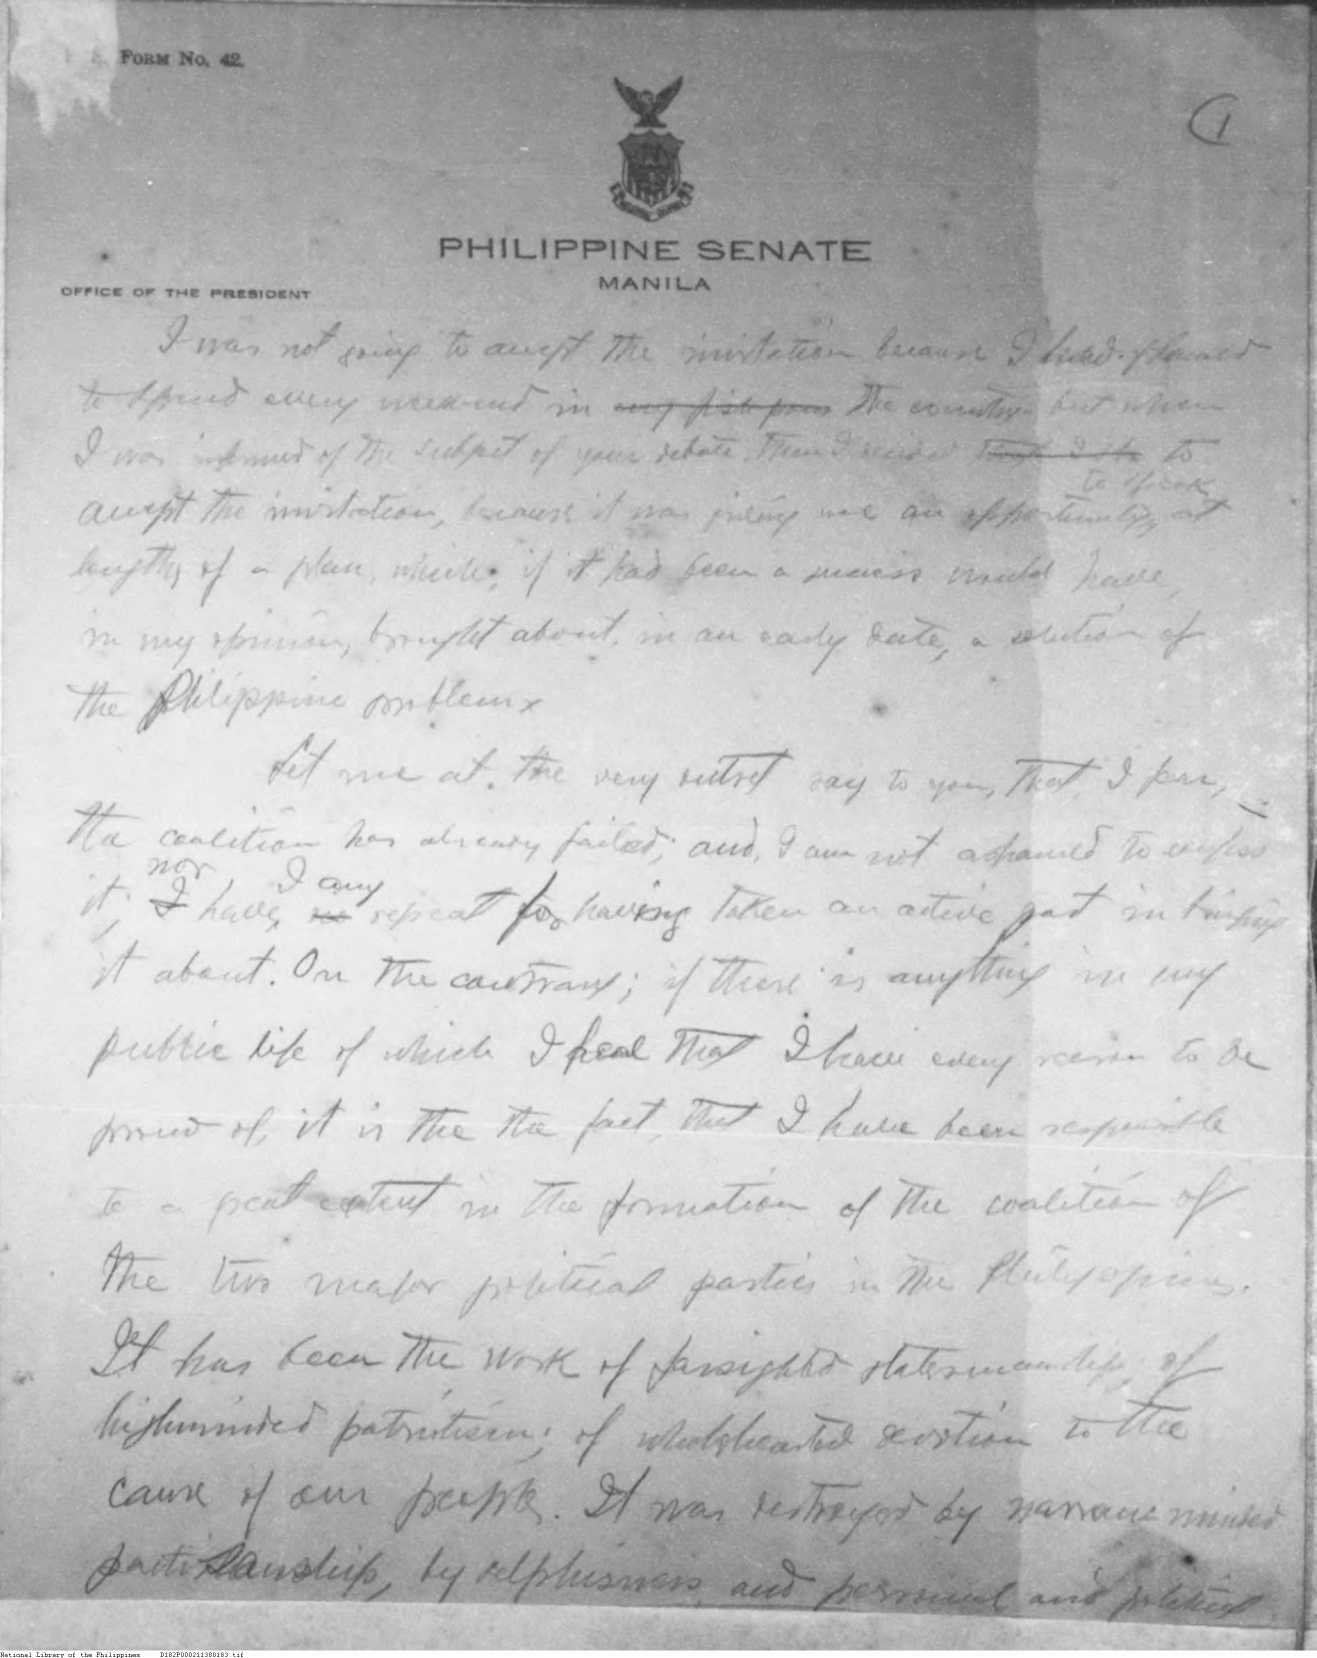 FORM No. 42.
1
PHILIPPINE SENATE
MANILA
OFFICE OF THE PRESIDENT
I was not going to accept the invitation because I had planned
to spend every week-end in my fish pond the country but when
I was informed of the subject of your debate then I decided to
to speak
accept the invitation, because it was giving me an opportunity, at
length, of a plan, which, if it had been a success would have,
in my opinion, brought about, in an early date, a solution of
the Philippine problem x
Let me at the very outset say to you, that, I fear,
the coalition has already failed; and, I am not ashamed to confess
nor I any
it; I have, no repeat for having taken an active part in bringing
it about. On the contrary; if there is anything in my
public life of which I feal that I have every reason to be
proud of, it is the the fact, that I have been responsible
to a great extent in the formation of the coalition of
the two major political parties in the Philippines.
It has been the work of farsighted statesmanship, of
highminded patriotism; of wholehearted devotion to the
cause of our people. It was destroyed by narrow minded
partisanship, by selfishness and personal and political
National Library of the Philippines D182P000211380183.tif